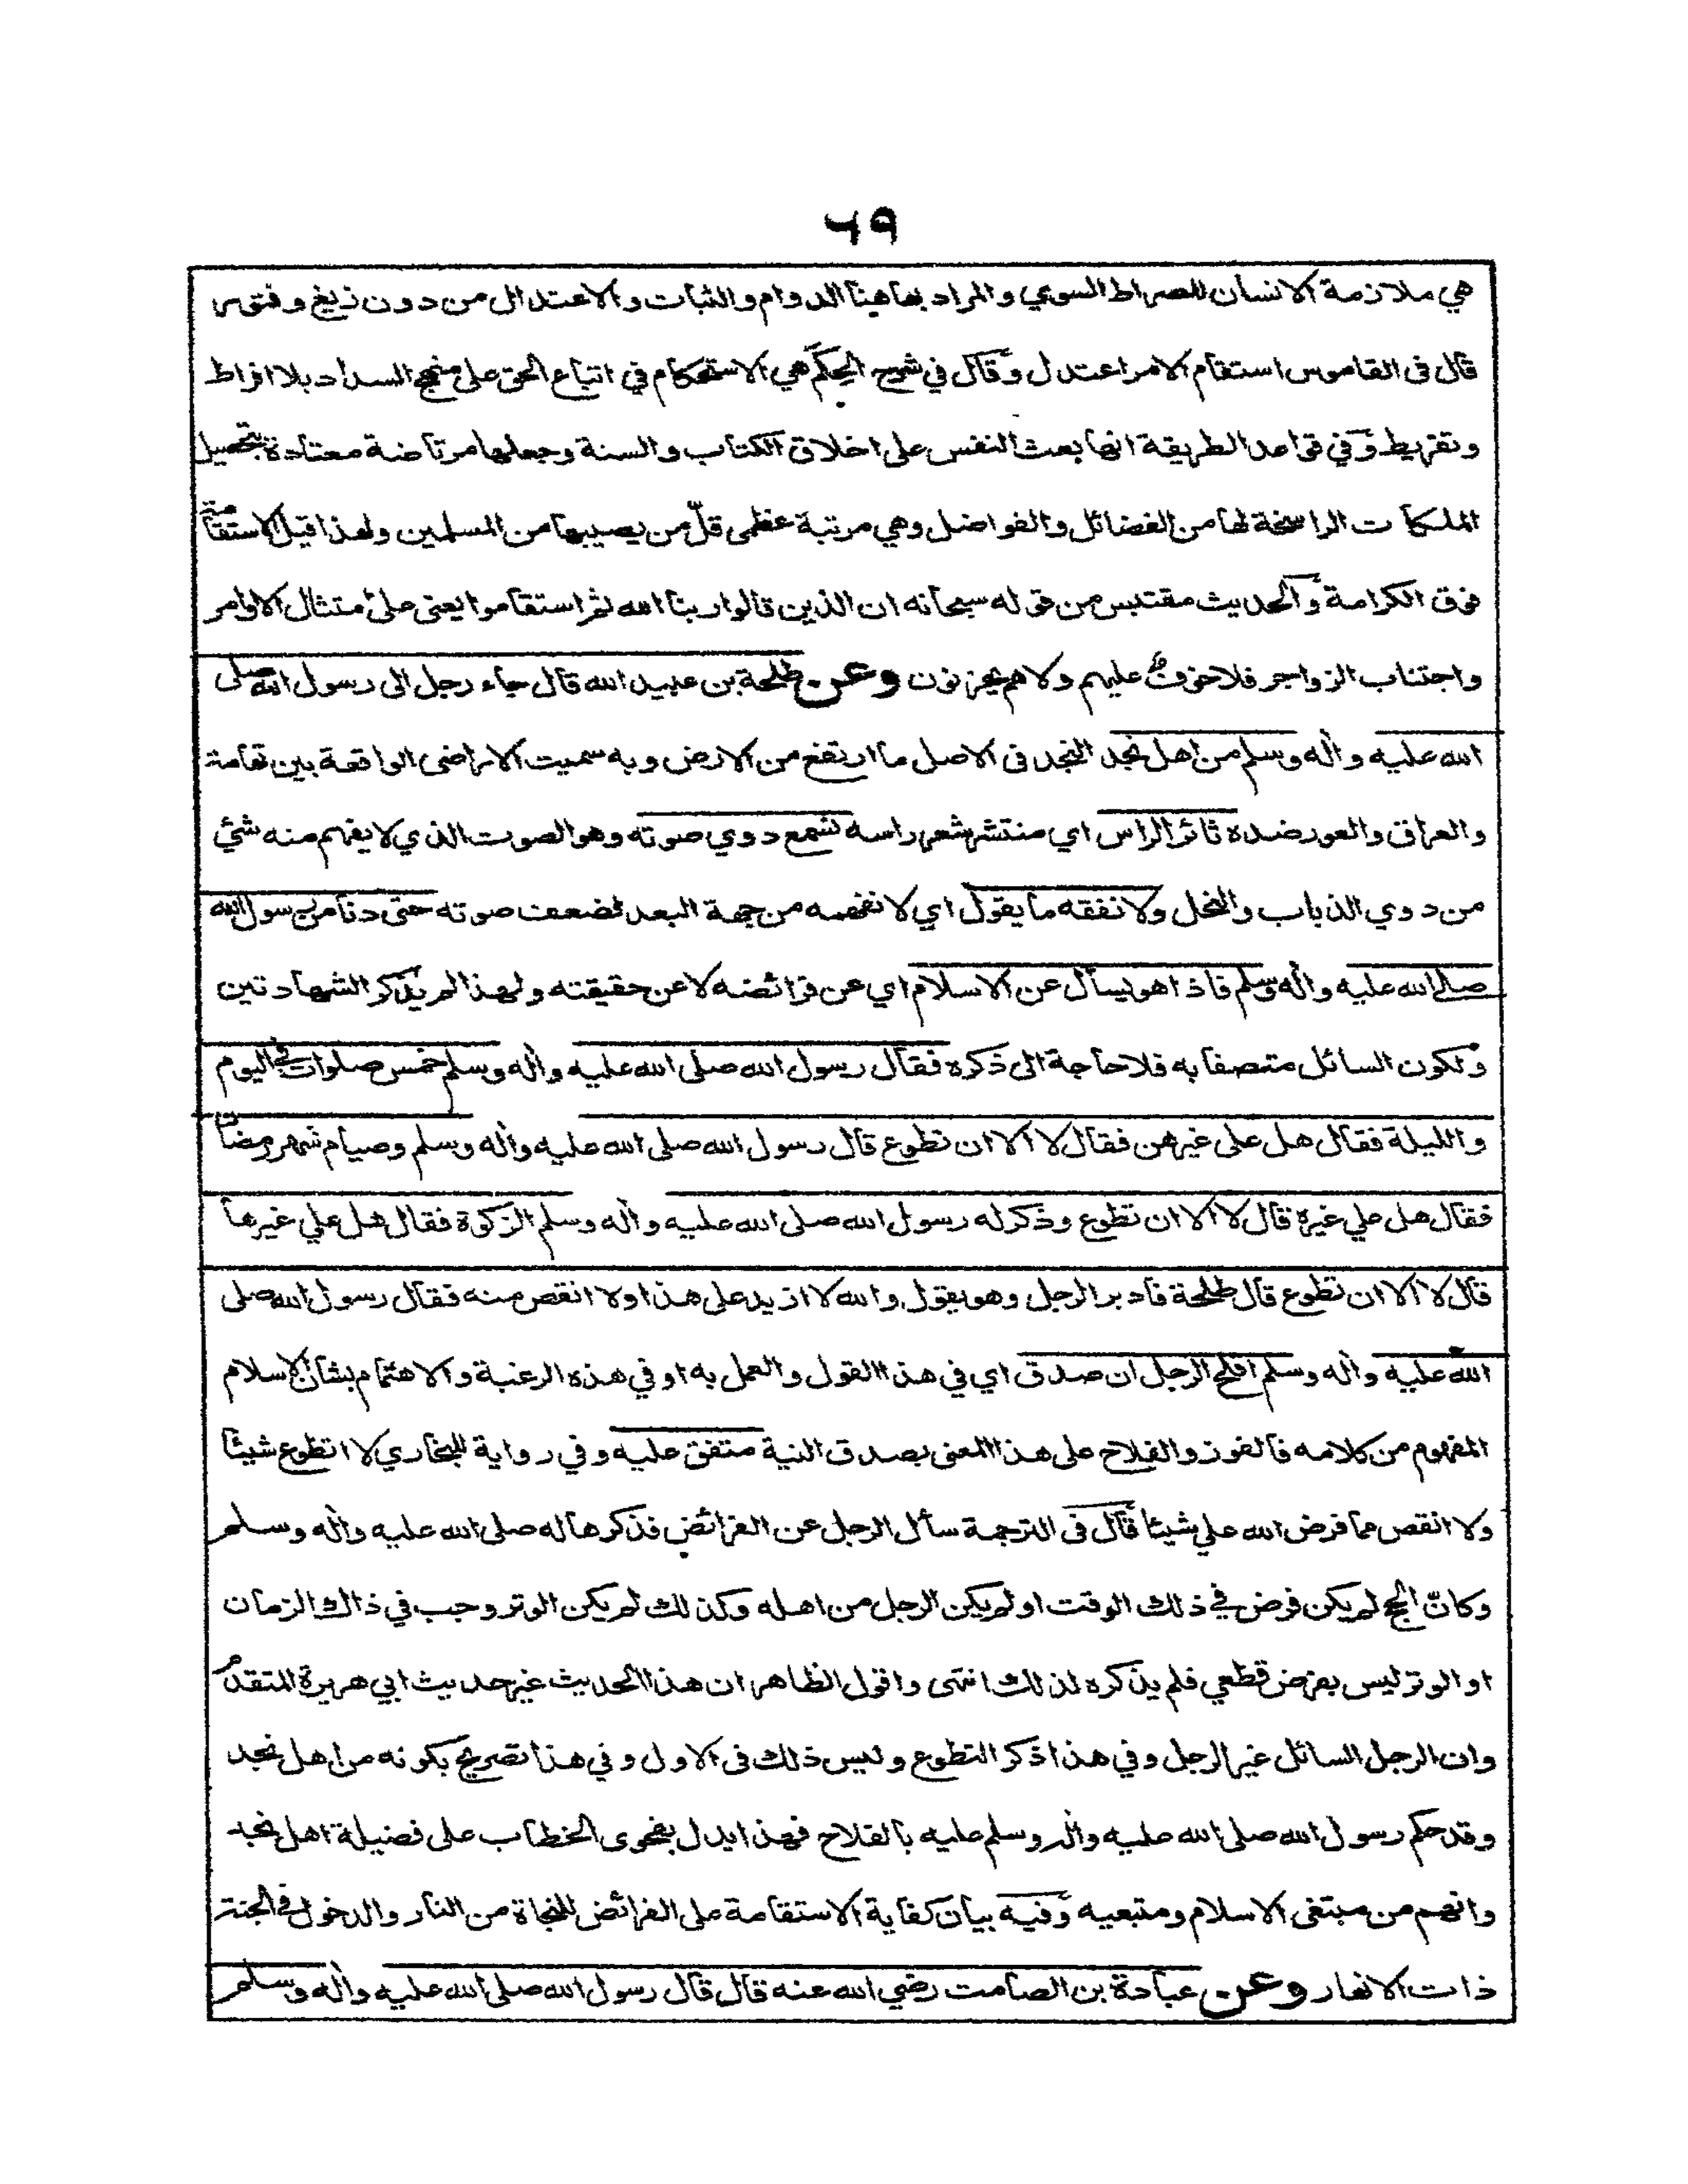 ٦٩
هي ملازمة الانسان للصراط السوي والمراد بها هنا الدوام والثبات والاعتدال من دون زيغ وفتور
قال فى القاموس استقام الامر اعتدل وقال في شرح الحِكَم هي الاستحكام في اتباع الحق على منهج السداد بلا افراط
وتفريط وفي قواعد الطريقة انها بعث النفس على اخلاق الكتاب والسنة وجعلها مرتاضة معتادة بتحصيل
الملكات الراسخة لها من الفضائل والفواضل وهي مرتبة عظمى قلّ من يصيبها من المسلمين ولهذا قيل الاستقامة
فوق الكرامة والحديث مقتبس من قوله سبحانه ان الذين قالوا ربنا الله ثم استقاموا يعنى على امتثال الاوامر
واجتناب الزواجر فلا خوفٌ عليهم ولا هم يحزنون وعن طلحة بن عبيد الله قال جاء رجل الى رسول الله صلى
الله عليه واٰله وسلم من اهل نجد النجد فى الاصل ما ارتفع من الارض وبه سميت الاراضى الواقعة بين تهامة
والعراق والعور ضده ثائر الراس اي منتشر شعر راسه نسمع دوي صوته وهو الصوت الذي لا يفهم منه شئ
من دوي الذباب والنحل ولا نفقه ما يقول اي لا نفهمه من جهة البعد لضعف صوته حتى دنا من رسول الله
صلى الله عليه واٰله وسلم فاذا هو يسأل عن الاسلام اي عن فرائضه لا عن حقيقته ولهذا لم يذكر الشهادتين
ولكون السائل متصفا به فلا حاجة الى ذكره فقال رسول الله صلى الله عليه واٰله وسلم خمس صلوات في اليوم
والليلة فقال هل على غيرهن فقال لا الا ان تطوع قال رسول الله صلى الله عليه واٰله وسلم وصيام شهر رمضان
فقال هل علي غيره قال لا الا ان تطوع وذكر له رسول الله صلى الله عليه واٰله وسلم الزكوة فقال هل علي غيرها
قال لا الا ان تطوع قال طلحة فادبر الرجل وهو يقول والله لا ازيد على هذا ولا انقص منه فقال رسول الله صلى
الله عليه واٰله وسلم افلح الرجل ان صدق اي في هذا القول والعمل به او في هذه الرغبة والاهتمام بشان الاسلام
المفهوم من كلامه فالفوز والفلاح على هذا المعنى بصدق النية متفق عليه وفي رواية للبخاري لا اتطوع شيئا
ولا انقص مما فرض الله علي شيئا قال فى الترجمة سأل الرجل عن الفرائض فذكرها له صلى الله عليه واٰله وسلم
وكانّ الحج لم يكن فرض في ذلك الوقت او لم يكن الرجل من اهله وكذلك لم يكن الوتر وجب في ذاك الزمان
او الوتر ليس بفرض قطعي فلم يذكره لذلك انتهى واقول الظاهر ان هذا الحديث غير حديث ابي هريرة المتقدم
وان الرجل السائل غير الرجل وفي هذا ذكر التطوع وليس ذلك فى الاول وفي هذا تصريح بكونه من اهل نجد
وقد حكم رسول الله صلى الله عليه واٰله وسلم عليه بالفلاح فهذا يدل بفحوى الخطاب على فضيلة اهل نجد
وانهم من مبتغى الاسلام ومتبعيه وفيه بيان كفاية الاستقامة على الفرائض للنجاة من النار والدخول في الجنة
ذات الانهار وعن عبادة بن الصامت رضي الله عنه قال قال رسول الله صلى الله عليه واٰله وسلم